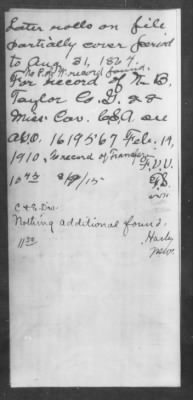 Later rolls on file
partially cover period
to Aug 31, 1864.
No P of W record found.
For record of N. B.
Taylor Co. G. 2d
Miss Cav. CSA see
A.G.O. 1619567 Feb. 19,
1910. No record of Transfer
F.D.U.
10 45 3/9/15
C & E. Div.
Nothing additional found.
11 30 Harly